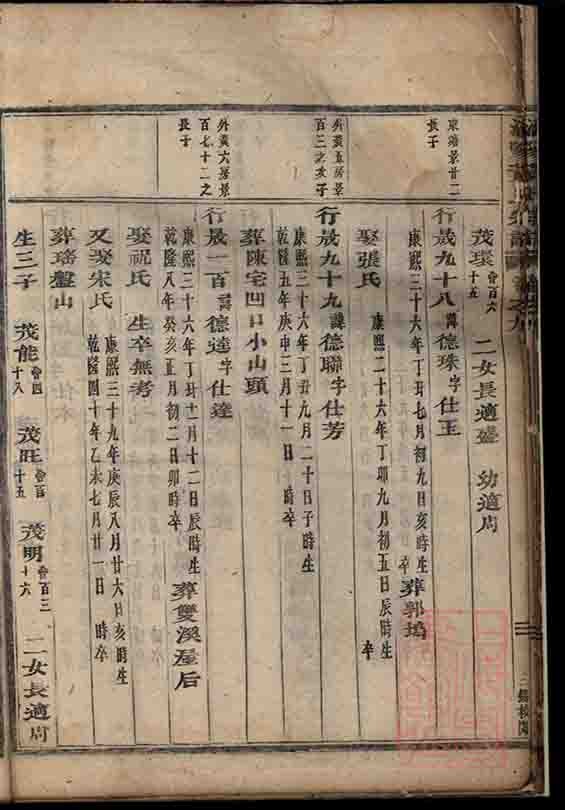 茂環 會百六十五 二女長適盛 幼適周
東諸景廿二長子
行晟九十八諱德珠字仕玉
康熙三十六年丁丑七月初九日亥時生 卒 葬郭塢
娶張氏 康熙二十六年丁卯九月初五日辰時生 卒
外黃五房景百三之次子
行晟九十九諱德聯字仕芳
康熙三十六年丁丑九月二十日子時生
乾隆五年庚申三月十一日 時卒
葬陳宅凹口小山頭
外黃六房景百七十二之長子
行晟一百諱德達字仕達
康熙三十六年丁丑十一月十二日辰時生
乾隆八年癸亥正月初二日卯時卒 葬雙溪屋后
娶祝氏 生卒無考
又娶宋氏 康熙三十九年庚辰八月廿六日亥時生
乾隆四十年乙未七月廿一日 時卒
葬瑤盤山
生三子 茂能 會四十八 茂旺 會百十五 茂明 會百三十六 二女長適周